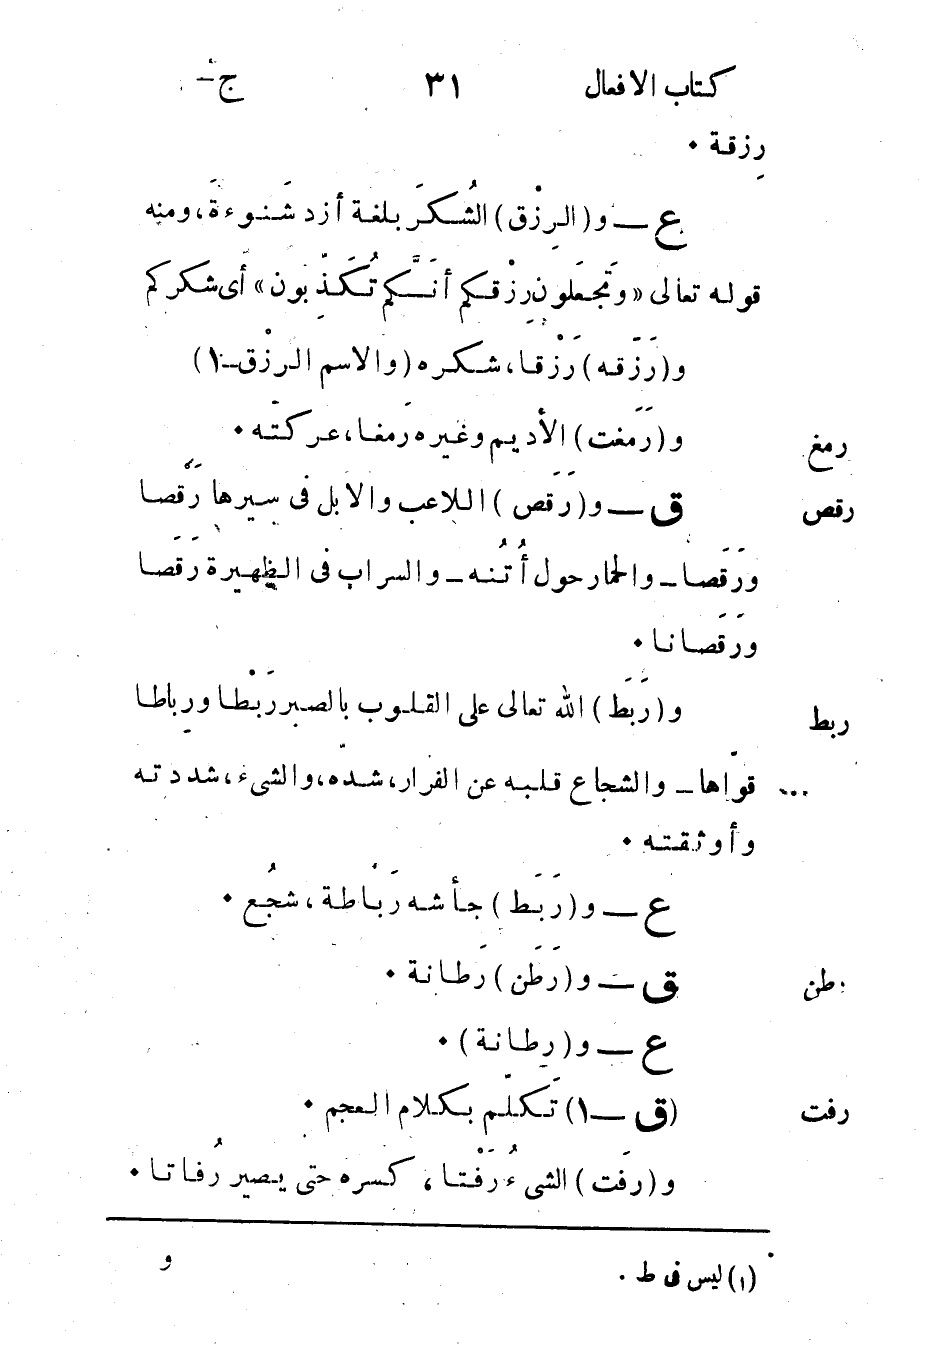 كتاب الافعال ٣١ ج
رزقة •
ع ــ و(الرِزْق) الشُكرَ بلغة أزد شَنوءةَ، ومنه
قوله تعالى «وَتَجعَلون رِزْقكم أنَّكم تُكَذّبون» أى شكركم
و(رَزَقه) رَزْقا، شكره (والاسم الرزْق ــ ١)
رمغ و(رَمَغت) الأديم وغيره رَمغا، عركتّه •
رقص ق ــ و(رَقَص) اللاعب والابل فى سيرها رَقْصا
ورَقَصا ــ والحمار حول أُتُنه ــ والسراب فى الظهيرة رَقَصا
ورَقَصانا •
ربط و(رَبَط) الله تعالى على القلوب بالصبر رَبْطا ورِباطا
... قوّاها ــ والشجاع قلبه عن الفرار، شدّه، والشىء، شددته
وأوثقته •
ع ــ و(رَبَط) جأشه رَبْاطة، شجُع •
طن ق ــ و(رَطَن) رَطانة •
ع ــ و(رِطانة) •
رفت (ق ــ ١) تَكلّم بكلام العجم •
و(رفَت) الشىءُ رَفْتا، كسره حتى يصير رُفاتا •
(١) ليس فى ط .
و